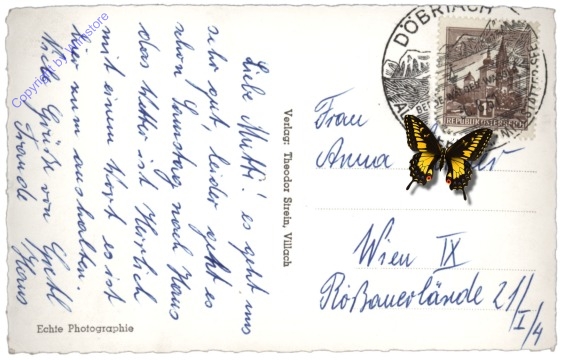 Liebe Mutti! es geht uns
sehr gut leider geht es
schon Samstag nach Haus
das Wetter ist Herrlich
mit einem Wort es ist
hier zum aushalten.
Viele Grüße von
Traude Hans
Echte Photographie
Verlag: Theodor Strein, Villach
DÖBRIACH
REPUBLIK ÖSTERREICH
Frau
Anna
Wien IX
Roßauerlände 21/I/4
Copyright by